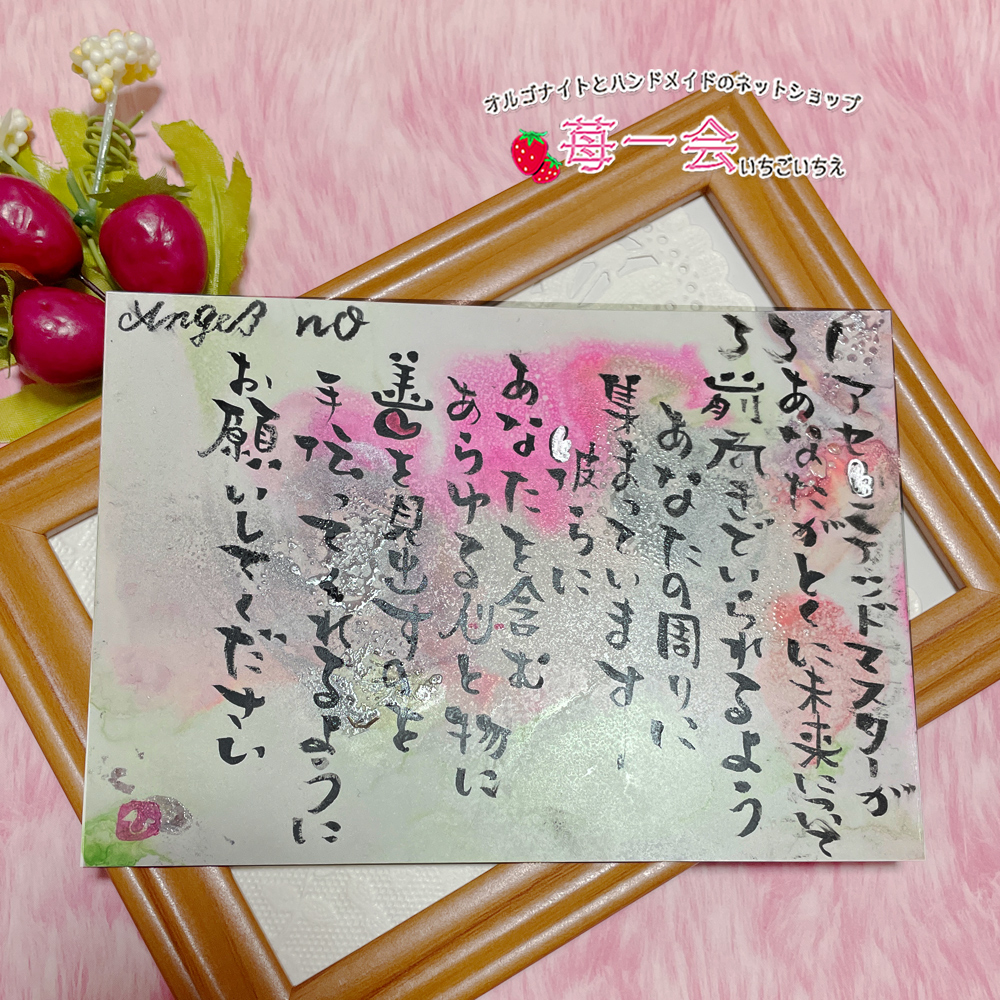 オルゴナイトとハンドメイドのネットショップ
苺一会
いちごいちえ
Angels no
331
アセンテッドマスターが
あなたがとくに未来について
前向きでいられるよう
あなたの周りに
集まっています
彼らに
あなたを含む
あらゆる心と物に
善を見出すのを
手伝ってくれるように
お願いしてください